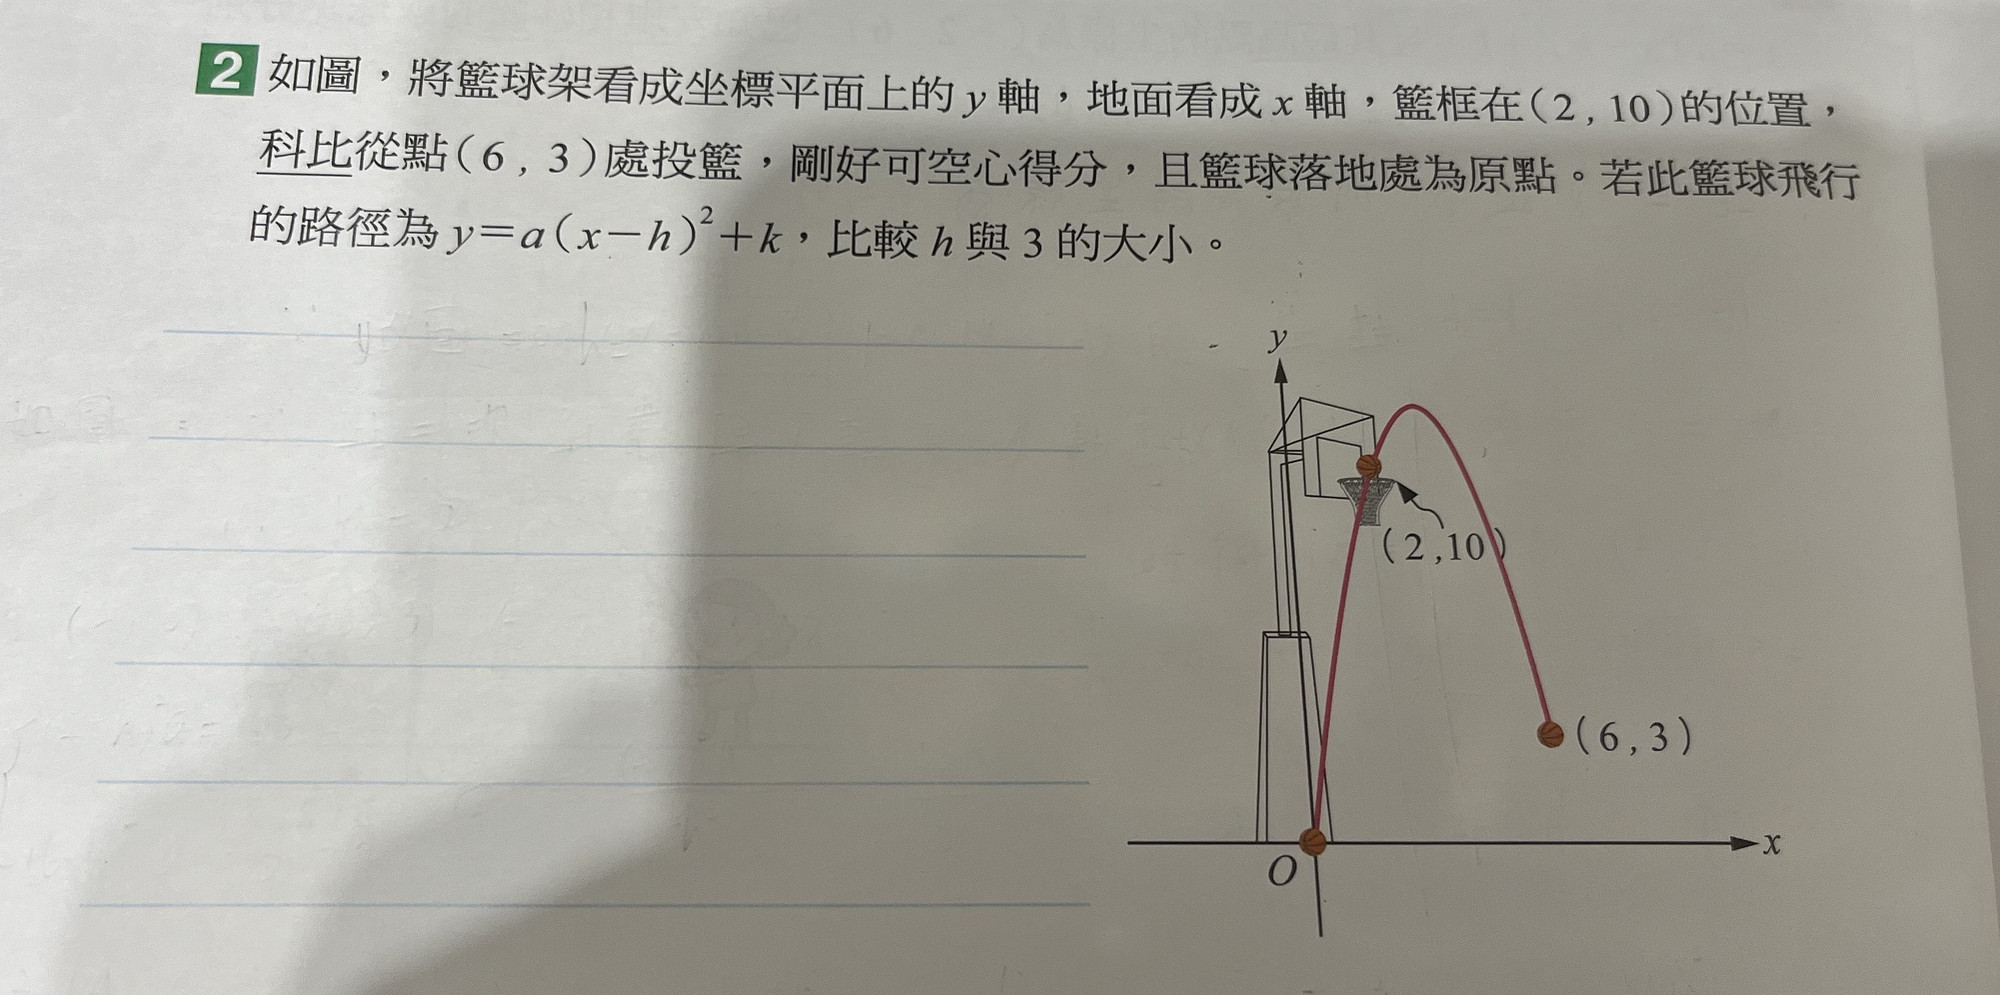 2 如圖，將籃球架看成坐標平面上的 y 軸，地面看成 x 軸，籃框在(2 , 10)的位置，
科比從點(6 , 3)處投籃，剛好可空心得分，且籃球落地處為原點。若此籃球飛行
的路徑為 y＝a(x－h)²＋k，比較 h 與 3 的大小。
y
(2 ,10)
(6 , 3)
x
O